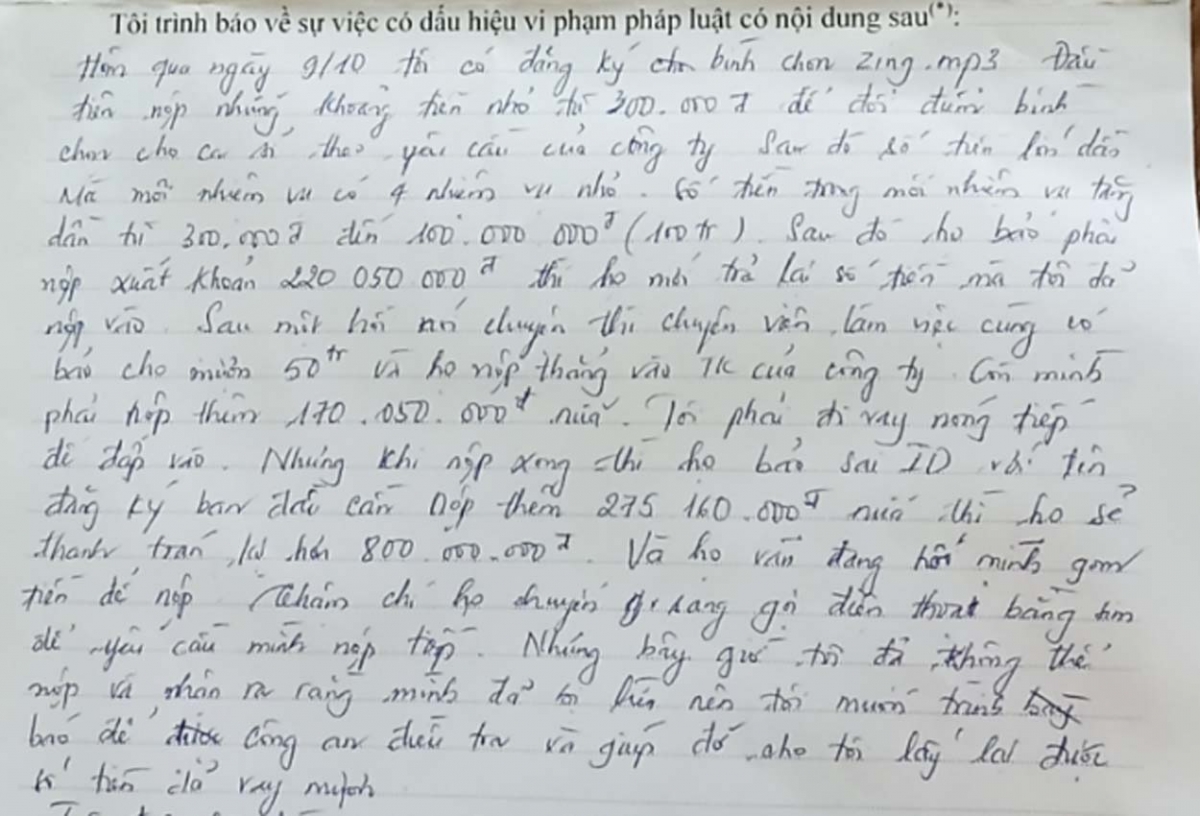 Tôi trình báo về sự việc có dấu hiệu vi phạm pháp luật có nội dung sau(*):
Hôm qua ngày 9/10 tôi có đăng ký bình chọn zing.mp3 Đầu
tiên nộp những khoảng tiền nhỏ từ 300.000đ để đổi điểm bình
chọn cho ca sĩ theo yêu cầu của công ty Sau đó số tiền lớn dần
Mà mỗi nhiệm vụ có 4 nhiệm vụ nhỏ. Số tiền trong mỗi nhiệm vụ tăng
dần từ 300.000đ đến 100.000 000đ (100tr). Sau đó họ bảo phải
nộp xuất khoản 220 050 000đ thì họ mới trả lại số tiền mà tôi đã
nộp vào. Sau một hồi nói chuyện thì chuyên viên làm việc cùng có
báo cho mượn 50tr và họ nộp thẳng vào TK của công ty. Còn mình
phải nộp thêm 170.050.000đ nữa. Tôi phải đi vay nóng tiếp
để đắp vào. Nhưng khi nộp xong thì họ bảo sai ID với tên
đăng ký ban đầu cần nộp thêm 275 160.000đ nữa thì họ sẽ
thanh toán lại hơn 800.000.000đ. Và họ vẫn đang hối mình gom
tiền để nộp. Thậm chí họ chuyển sang gọi điện thoại bằng
để yêu cầu mình nộp tiếp. Nhưng bây giờ tôi đã không thể
nộp và nhận ra rằng mình đã bị lừa nên tôi muốn trình bày
báo để được công an điều tra và giúp đỡ cho tôi lấy lại được
số tiền đã vay mượn